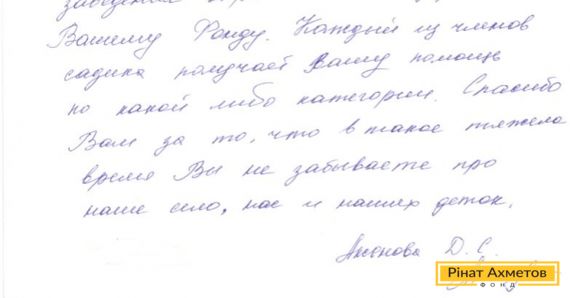 заведения
Вашему Фонду. Каждый из членов
садика получает Вашу помощь
по какой либо категории. Спасибо
Вам за то, что в такое тяжело
время Вы не забываете про
наше село, нас и наших деток.
Д. С.
Рінат Ахметов
ФОНД